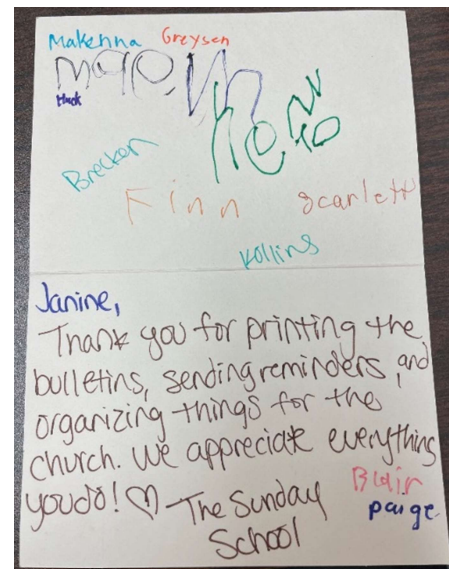 Makenna Greysen
Huck
Brecken
Finn Scarlett
Kollins
Janine,
Thank you for printing the
bulletins, sending reminders, and
organizing things for the
church. We appreciate everything
you do! ♡ The Sunday
School
Blair
paige